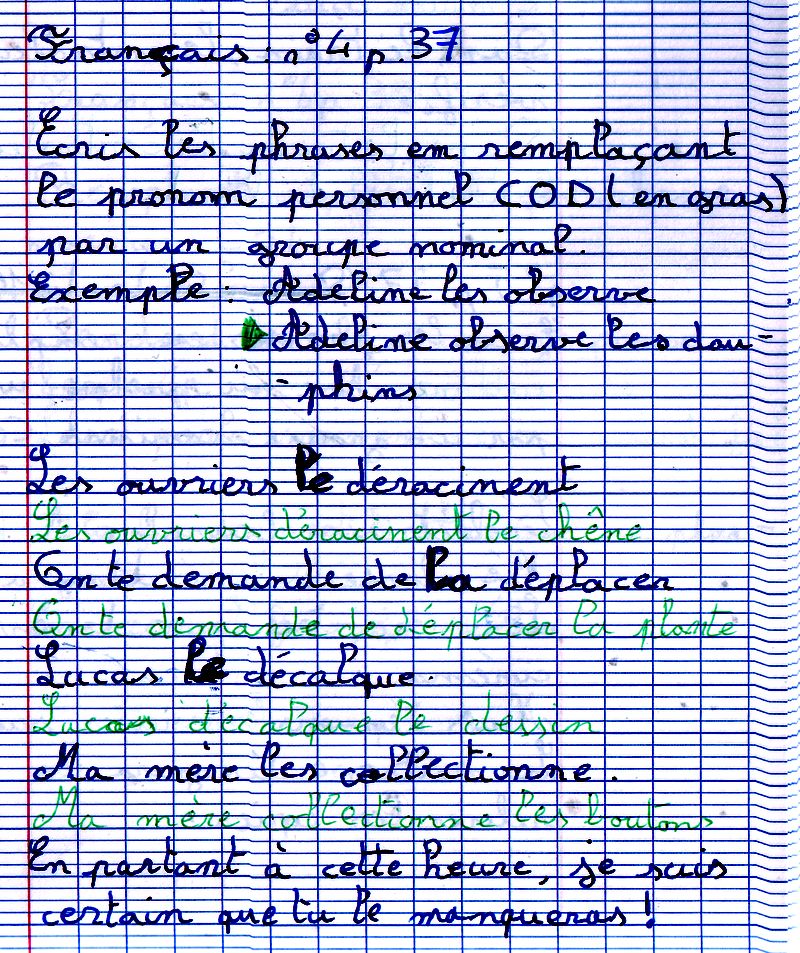 Français : n°4 p.37
Ecris les phrases en remplaçant
le pronom personnel COD (en gras)
par un groupe nominal.
Exemple : Adeline les observe
Adeline observe les dau-
-phins
Les ouvriers le déracinent
Les ouvriers déracinent le chêne
On te demande de la déplacer
On te demande de déplacer la plante
Lucas le décalque.
Lucas décalque le dessin
Ma mère les collectionne.
Ma mère collectionne les boutons
En partant à cette heure, je suis
certain que tu le manqueras !